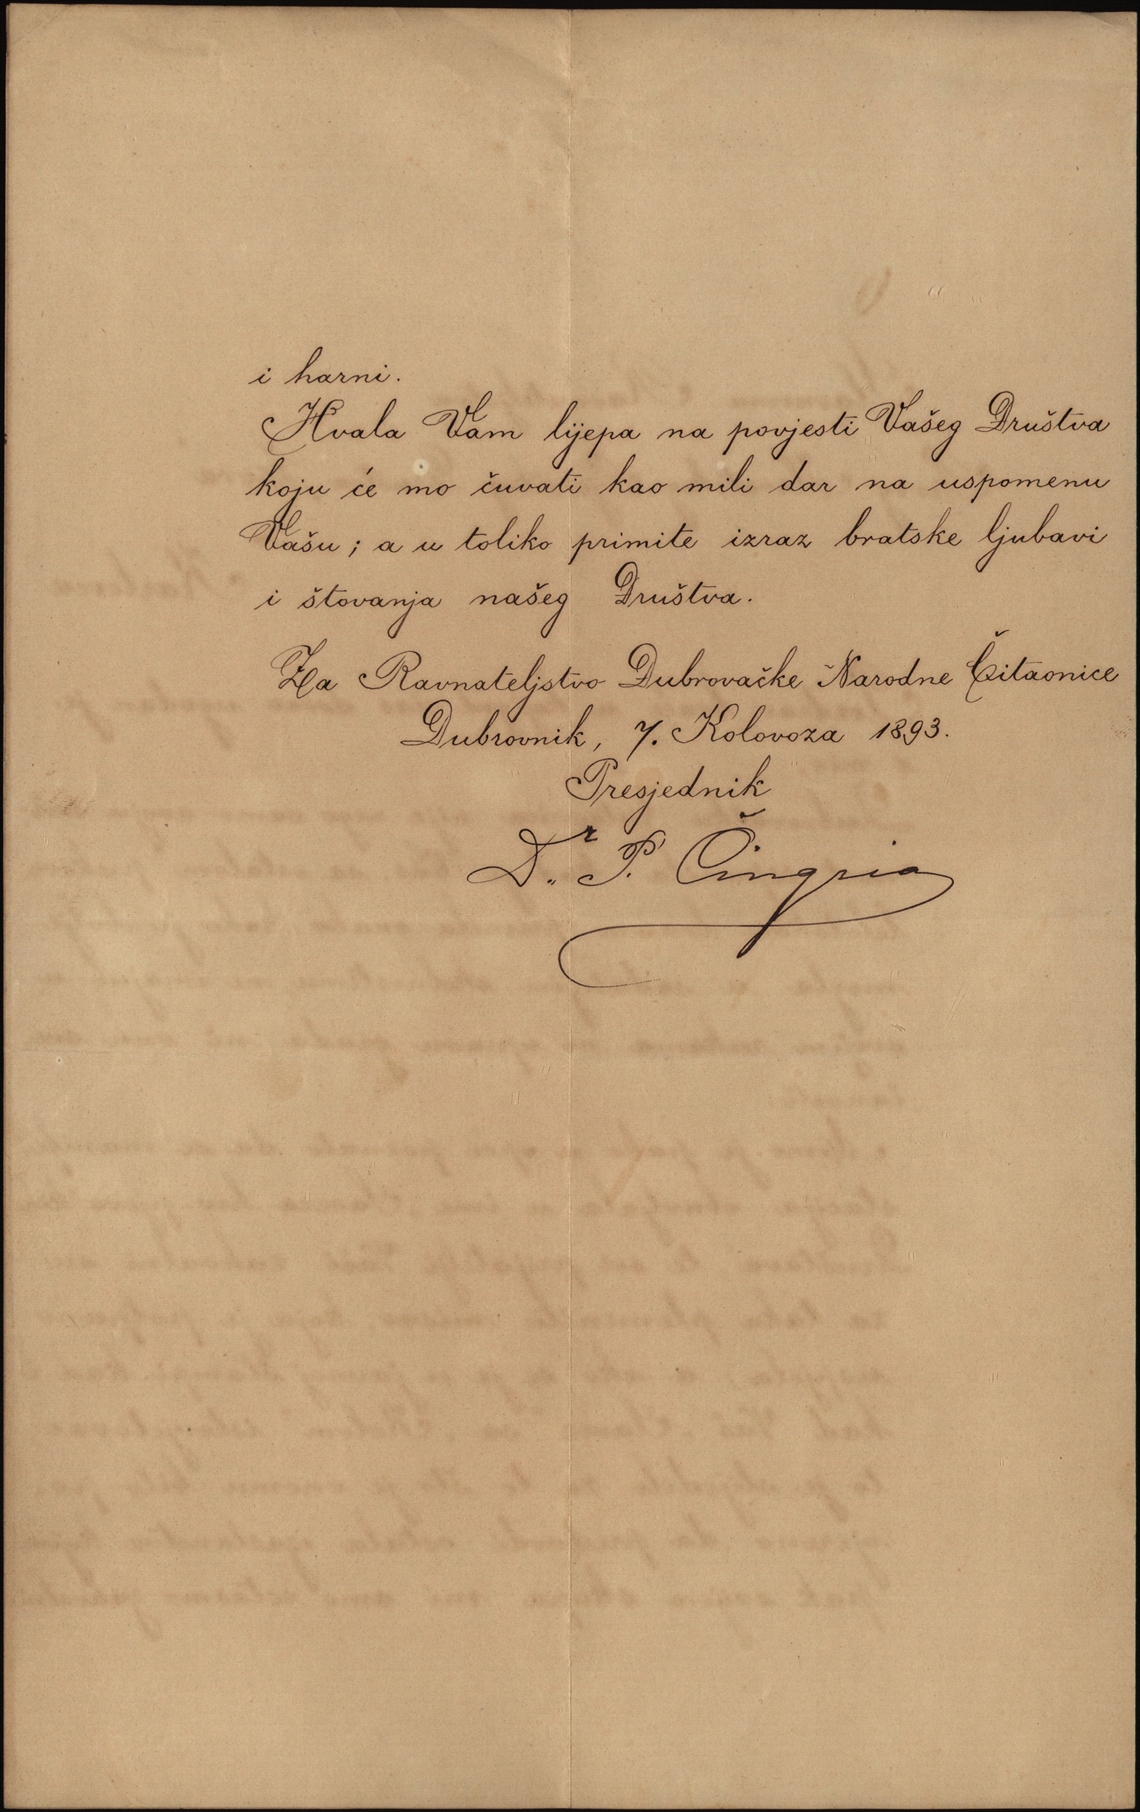 i harni.
Hvala Vam lijepa na povjesti Vašeg Društva
koju će mo čuvati kao mili dar na uspomenu
Vašu; a u toliko primite izraz bratske ljubavi
i štovanja našeg Društva.
Za Ravnateljstvo Dubrovačke Narodne Čitaonice
Dubrovnik, 7. Kolovoza 1893.
Presjednik
Dr. P. Čingria